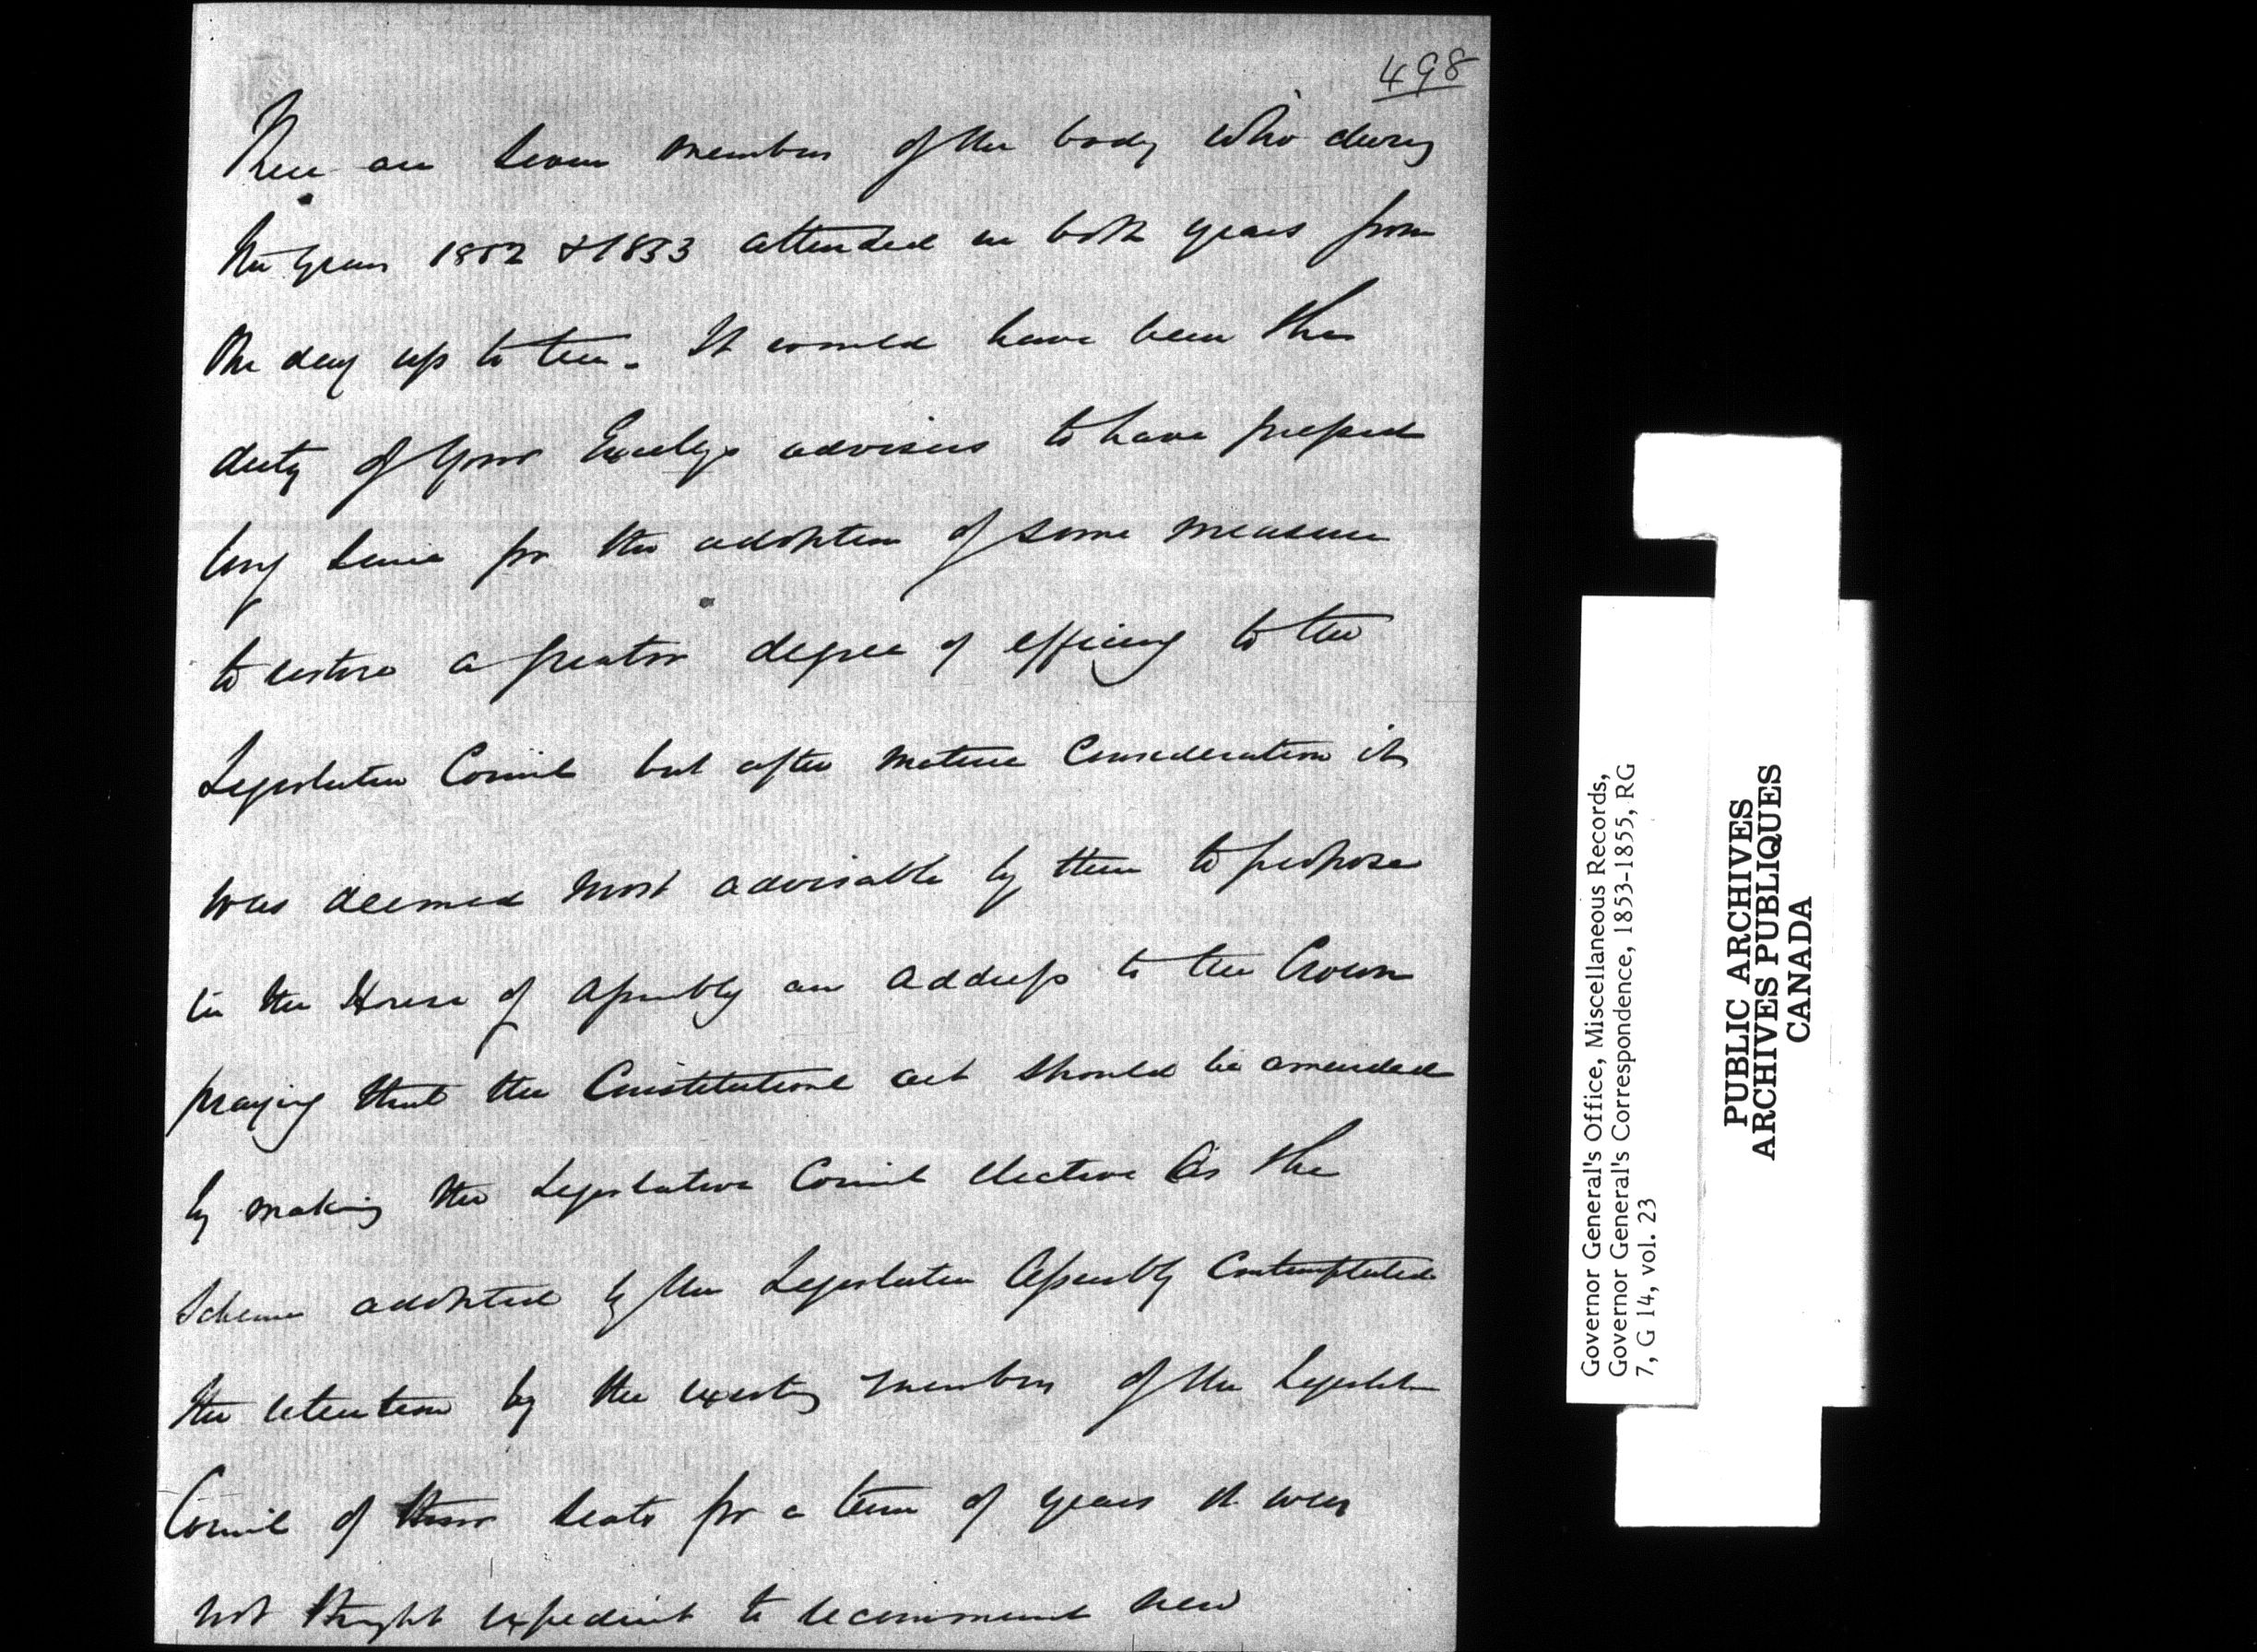 498
There are seven members of the body who during
the years 1852 & 1853 attended in both years from
one day up to ten. It would have been the
duty of Your Excellys advisers to have prepared
long since for the adoption of some measure
to restore a greater degree of efficiency to the
Legislative Council but after mature consideration it
was deemed most advisable by them to propose
in the House of Assembly an address to the Crown
praying that the Constitutional act should be amended
by making the Legislative Council elective As the
Scheme adopted by the Legislative Assembly Contemplated
the retention by the existing members of the Legislative
Council of their seats for a term of years it was
not thought expedient to recommend new
Governor General's Office, Miscellaneous Records,
Governor General's Correspondence, 1853-1855, RG
7, G 14, vol. 23
PUBLIC ARCHIVES
ARCHIVES PUBLIQUES
CANADA